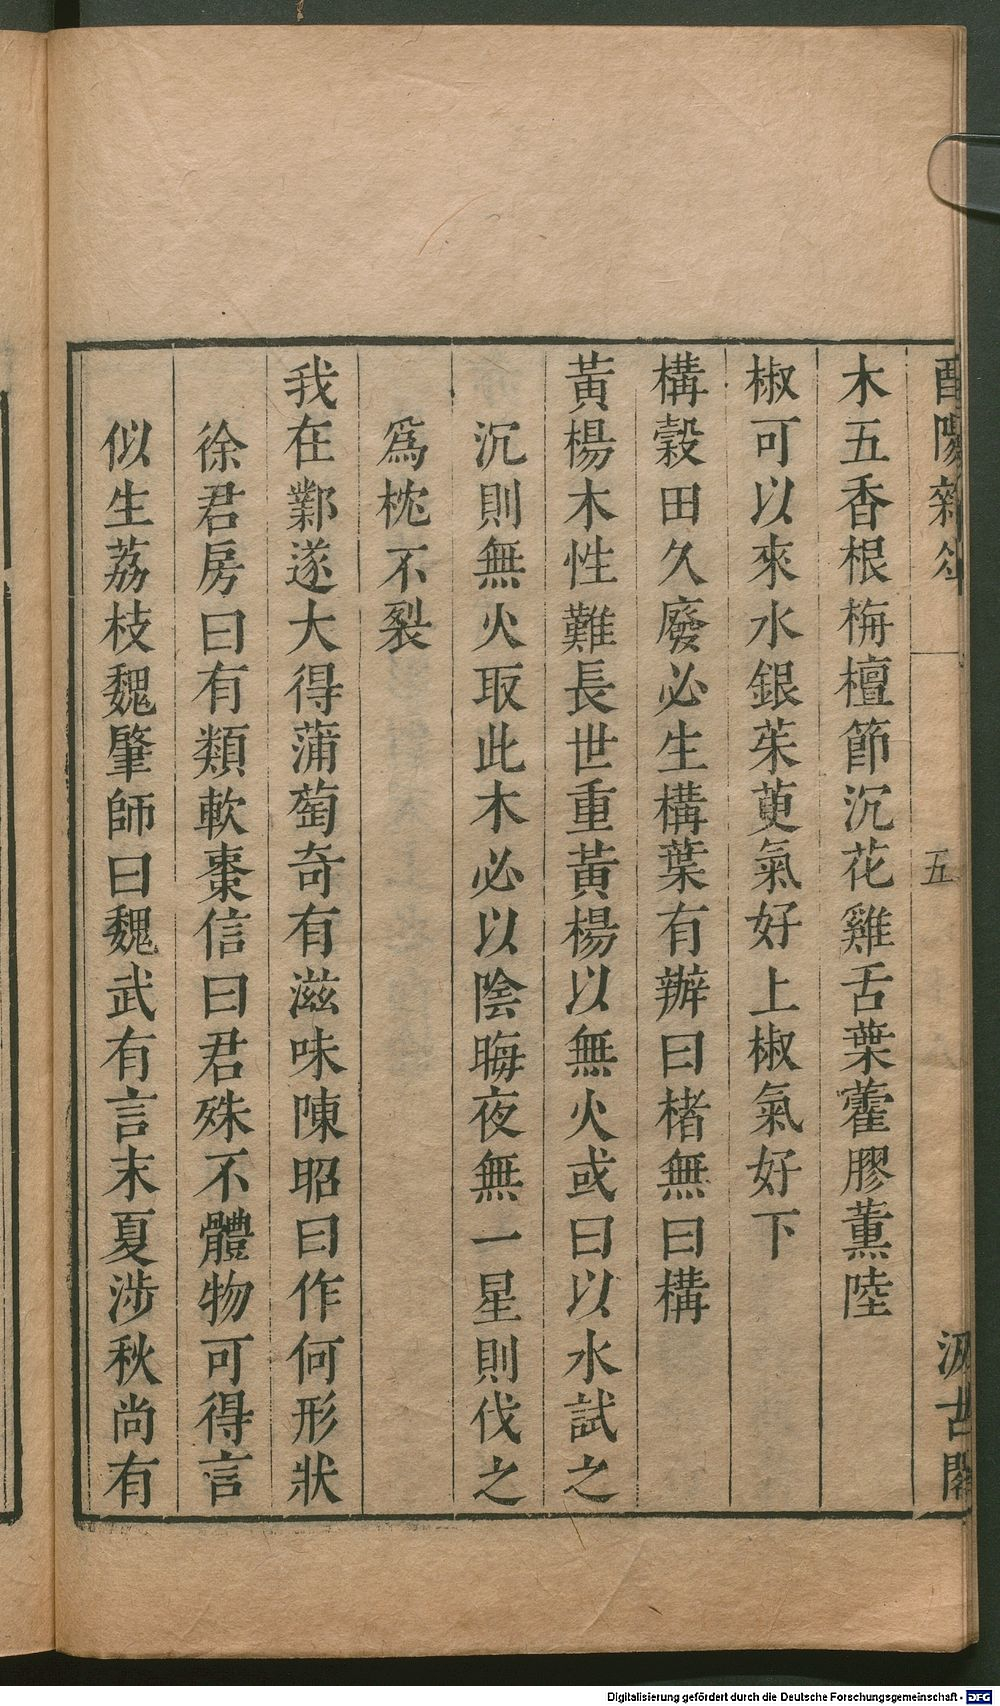 酉陽雜俎
五
汲古閣
木五香根栴檀節沉花雞舌葉藿膠薰陸
椒可以來水銀茱萸氣好上椒氣好下
構穀田久廢必生構葉有瓣曰楮無曰構
黃楊木性難長世重黃楊以無火或曰以水試之
沉則無火取此木必以陰晦夜無一星則伐之
爲枕不裂
我在鄴遂大得蒲萄奇有滋味陳昭曰作何形狀
徐君房曰有類軟棗信曰君殊不體物可得言
似生荔枝魏肇師曰魏武有言末夏涉秋尚有
Digitalisierung gefördert durch die Deutsche Forschungsgemeinschaft - DFG